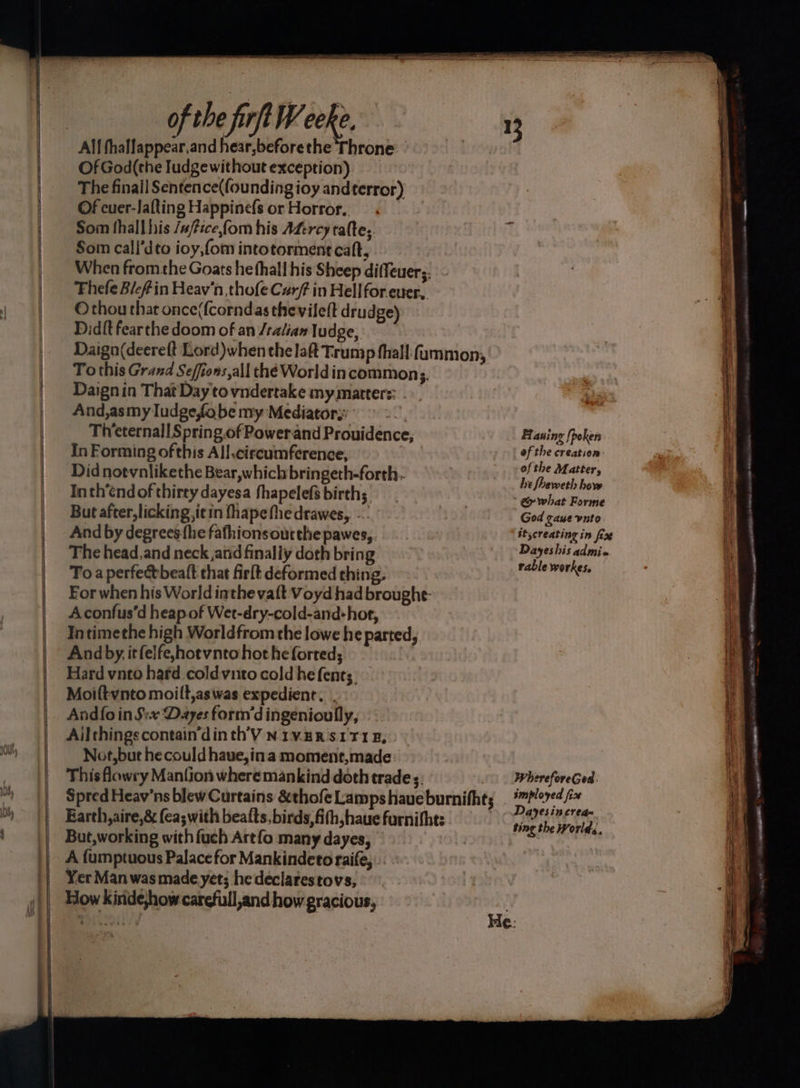 of the firſt Weeke. 13
All ſhall appear, and hear, before the Throne
Of God (the Iudge without exception)
The finall Sentence (ſounding ioy and terror)
Of euer-laſting Happineſs or Horror.
Som ſhall his Iuſtice, ſom his Mercy taſte;
Som call'd to ioy, ſom into torment caſt,
When from the Goats he ſhall his Sheep diſſeuer;
Theſe Bleſt in Heav'n, thoſe Curſt in Hell for euer.
O thou that once (ſcornd as the vileſt drudge)
Didſt fear the doom of an Italian Iudge,
Daign (deereſt Lord) when the laſt Trump ſhall ſummon,
To this Grand Seſſions, all the World in common;
Daign in That Day to vndertake my matter:
And, as my Iudge, ſo be my Mediator.
Th'eternall Spring of Power and Prouidence,
In Forming of this All-circumference,
Did not vnlike the Bear, which bringeth-forth
In th'end of thirty dayes a ſhapeleſs birth;
But after, licking, it in ſhape ſhe drawes,
And by degrees ſhe faſhions out the pawes,
The head, and neck, and finally doth bring
To a perfect beaſt that firſt deformed thing.
For when his World in the vaſt Voyd had brought
A confus'd heap of Wet-dry-cold-and-hot,
In time the high World from the lowe he parted,
And by it ſelfe, hot vnto hot he ſorted;
Hard vnto hard, cold vnto cold he ſent;
Moiſt vnto moiſt, as was expedient.
And ſo in Six Dayes form'd ingeniouſly,
All things contain'd in th'VNIVERSITIE,
Not, but he could haue, in a moment, made
This flowry Manſion where mankind doth trade;
Spred Heav'ns blew Curtains & thoſe Lamps haue burniſht;
Earth, aire, & ſea; with beaſts, birds, fiſh, haue furniſht:
But, working with ſuch Art ſo many dayes,
A ſumptuous Palace for Mankinde to raiſe,
Yer Man was made yet; he declares to vs,
How kinde, how carefull, and how gracious,
He
Hauing ſpoken
of the creation
of the Matter,
he ſheweth how
& what Forme
God gaue vnto
it, creating in ſix
Dayes his admi-
rable workes.
Wherefore God
imployed ſix
Dayes in crea-
ting the World.